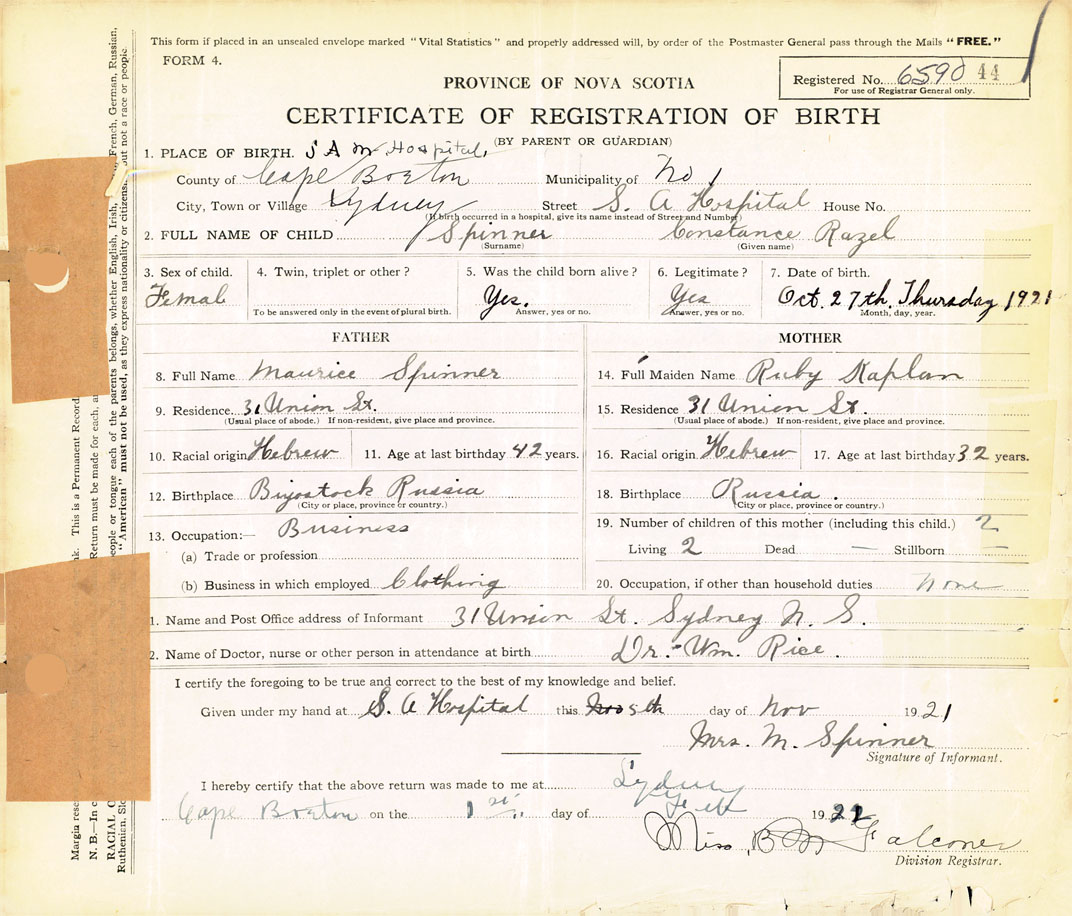 This form if placed in an unsealed envelope marked "Vital Statistics" and properly addressed will, by order of the Postmaster General pass through the Mails "FREE."
FORM 4.
Registered No. 6590 44
For use of Registrar General only.
PROVINCE OF NOVA SCOTIA
CERTIFICATE OF REGISTRATION OF BIRTH
(BY PARENT OR GUARDIAN)
1. PLACE OF BIRTH. S A M Hospital,
County of Cape Breton Municipality of No 1
City, Town or Village Sydney Street S. A Hospital House No.
(If birth occurred in a hospital, give its name instead of Street and Number)
2. FULL NAME OF CHILD Spinner Constance Razel
(Surname) (Given name)
3. Sex of child. 4. Twin, triplet or other? 5. Was the child born alive? 6. Legitimate? 7. Date of birth.
Femal Yes. Yes Oct. 27th, Thursday 1921
To be answered only in the event of plural birth. Answer, yes or no. Answer, yes or no. Month, day, year.
FATHER
8. Full Name Maurice Spinner
9. Residence 31 Union St.
(Usual place of abode.) If non-resident, give place and province.
10. Racial origin Hebrew 11. Age at last birthday 42 years.
12. Birthplace Biyostock Russia
(City or place, province or country.)
13. Occupation:— Business
(a) Trade or profession
(b) Business in which employed Clothing
MOTHER
14. Full Maiden Name Ruby Kaplan
15. Residence 31 Union St.
(Usual place of abode.) If non-resident, give place and province.
16. Racial origin Hebrew 17. Age at last birthday 32 years.
18. Birthplace Russia.
(City or place, province or country.)
19. Number of children of this mother (including this child.) 2
Living 2 Dead — Stillborn —
20. Occupation, if other than household duties none
1. Name and Post Office address of Informant 31 Union St. Sydney N. S.
2. Name of Doctor, nurse or other person in attendance at birth Dr. Wm. Rice.
I certify the foregoing to be true and correct to the best of my knowledge and belief.
Given under my hand at S. A Hospital this 5th day of Nov 1921
Mrs. M. Spinner
Signature of Informant.
I hereby certify that the above return was made to me at Sydney
Cape Breton on the 1st. day of Feb 1922
Miss B M Falconer
Division Registrar.
Margin rese nk. This is a Permanent Record.
N. B.—In c Return must be made for each, a
RACIAL O people or tongue each of the parents belongs, whether English, Irish, French, German, Russian,
Ruthenian, Slo "American" must not be used, as they express nationality or citizens but not a race or people.